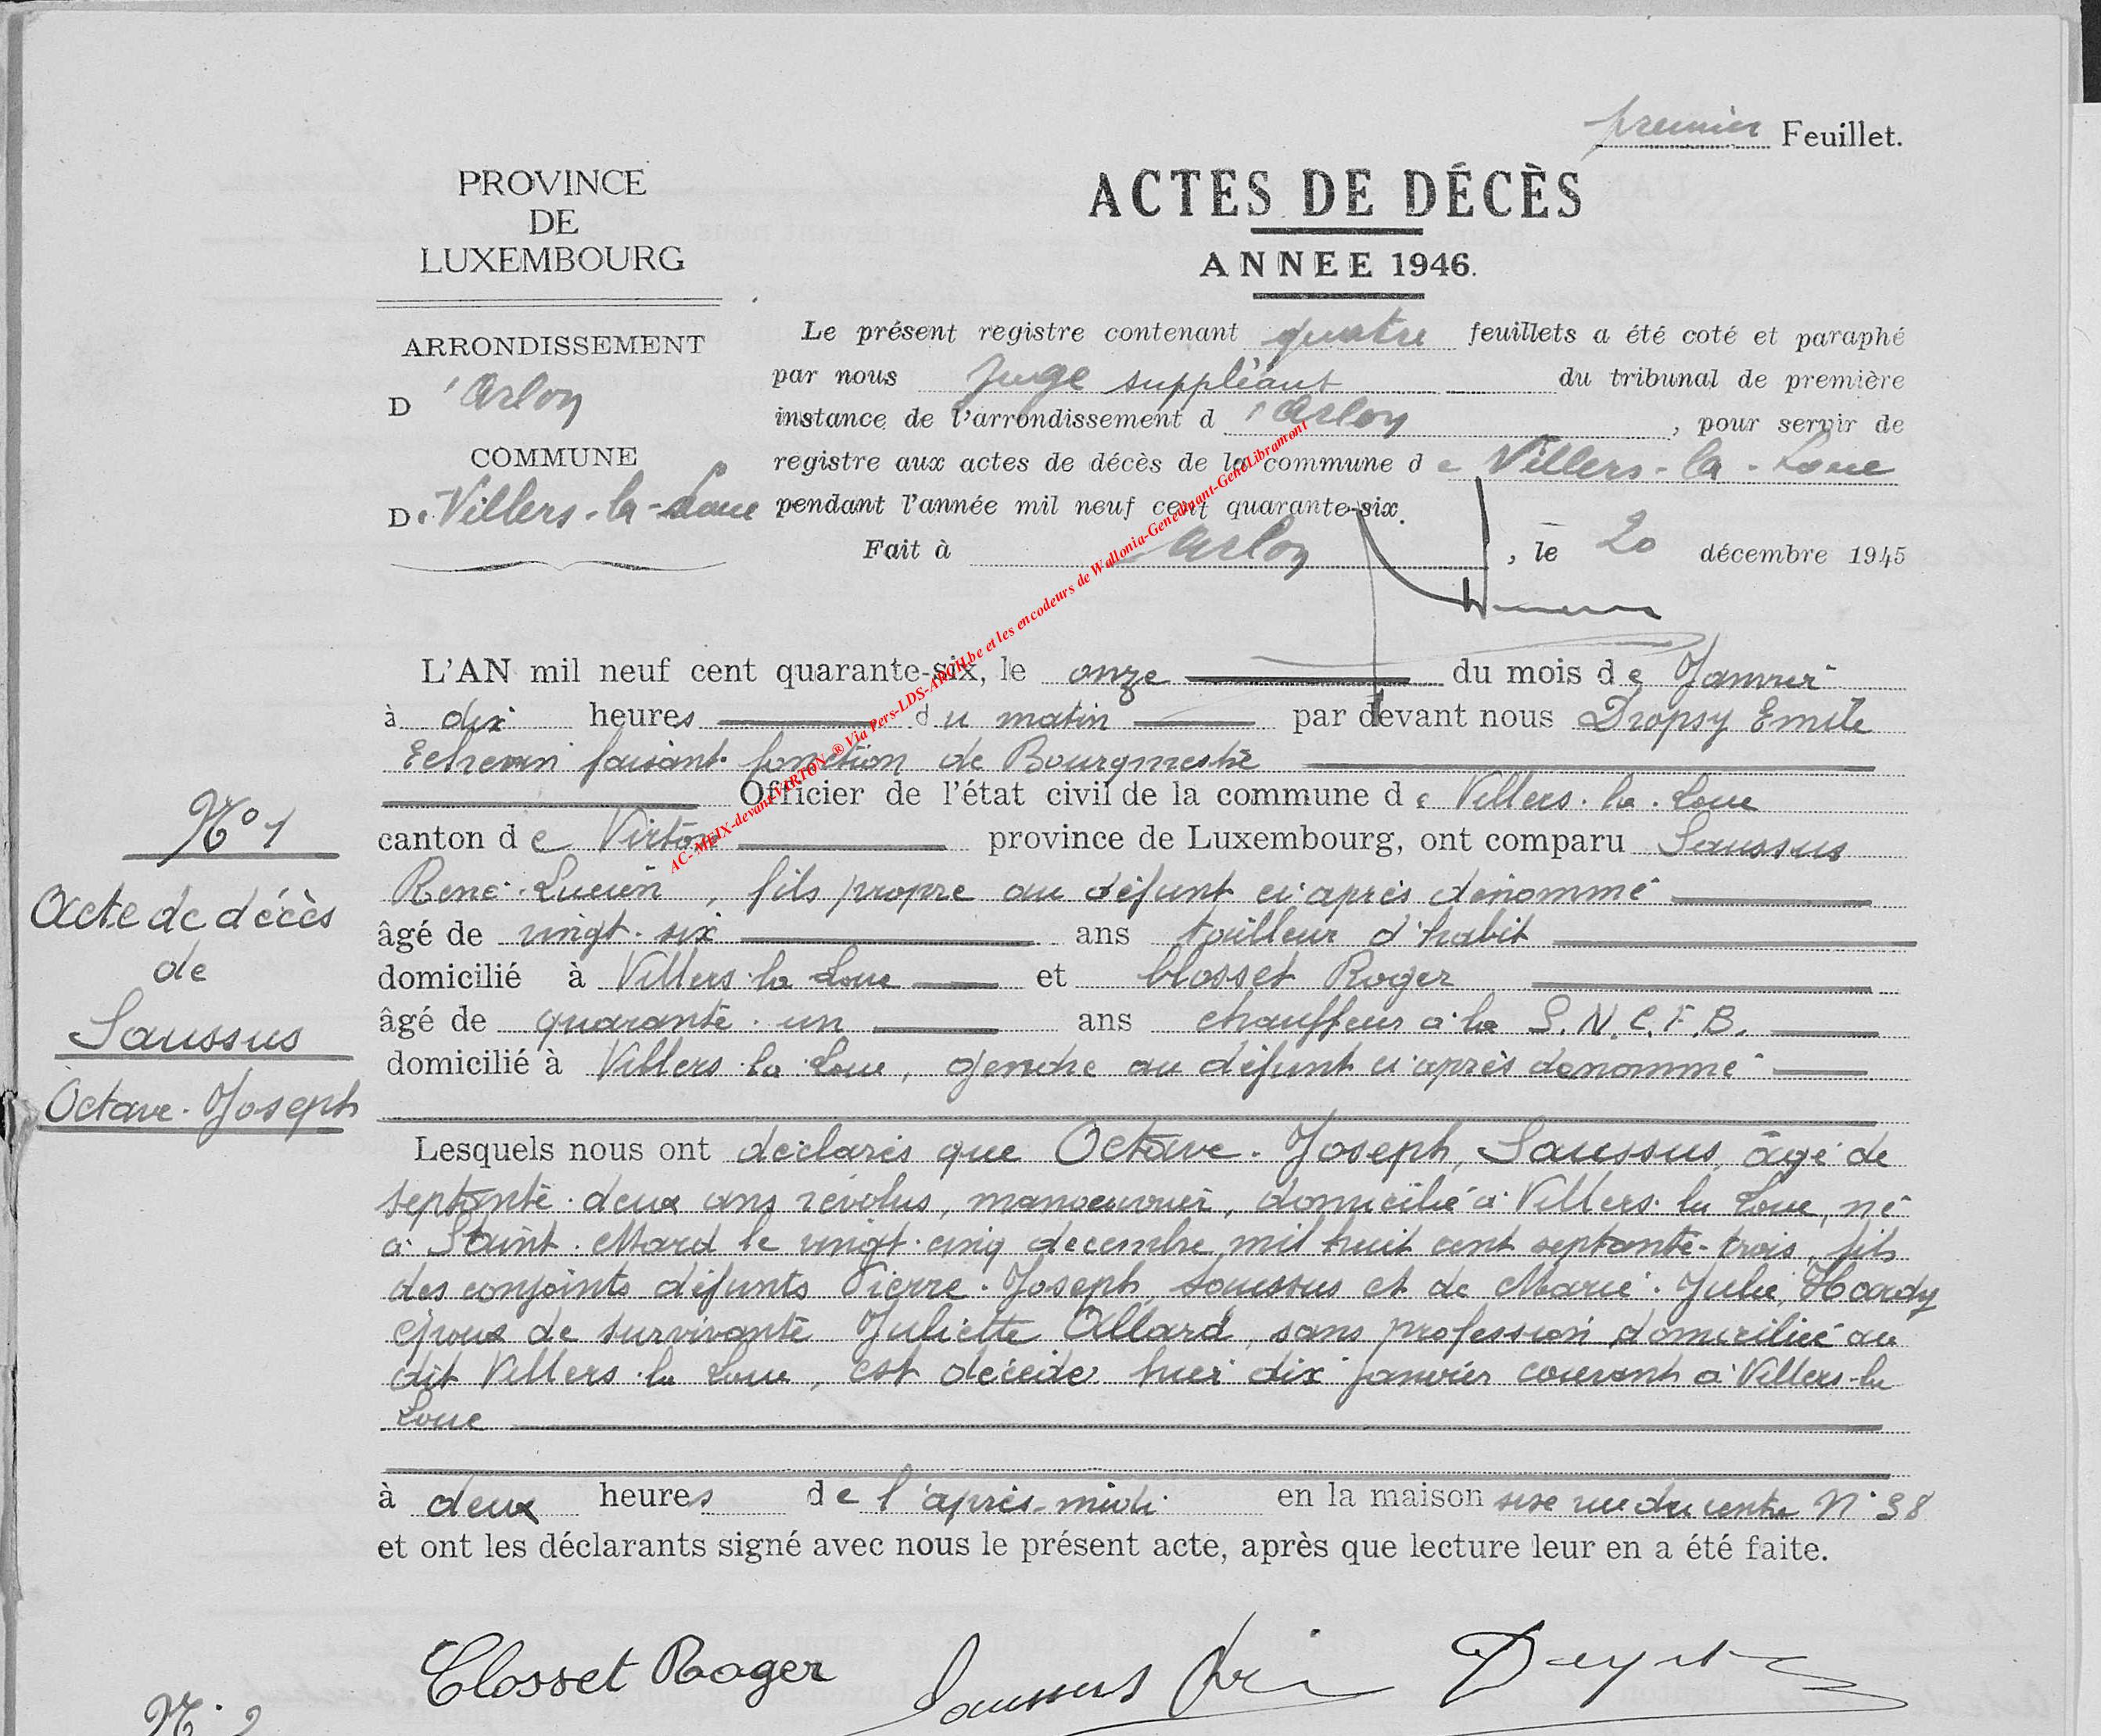 premier Feuillet.
PROVINCE
DE
LUXEMBOURG
ARRONDISSEMENT
D'Arlon
COMMUNE
De Villers-la-Loue
ACTES DE DÉCÈS
ANNEE 1946.
Le présent registre contenant quatre feuillets a été coté et paraphé
par nous Juge suppléant du tribunal de première
instance de l'arrondissement d'Arlon, pour servir de
registre aux actes de décès de la commune de Villers-la-Loue
pendant l'année mil neuf cent quarante-six.
Fait à Arlon, le 20 décembre 1945
AC-MEIX-devant-VIRTON ® Via Pers-LDS-ARCH.be et les encodeurs de Wallonia-Genedinant-GeneLibramont
L'AN mil neuf cent quarante-six, le onze du mois de Janvier
à dix heures du matin par devant nous Dropsy Emile
Echevin faisant fonction de Bourgmestre
Officier de l'état civil de la commune de Villers-la-Loue
canton de Virton province de Luxembourg, ont comparu Saussus
René-Lucien, fils propre au défunt ci après dénommé
âgé de vingt-six ans tailleur d'habit
domicilié à Villers-la-Loue et Closset Roger
âgé de quarante-un ans chauffeur à la S.N.C.F.B.
domicilié à Villers-la-Loue, gendre au défunt ci après dénommé
Lesquels nous ont déclarés que Octave-Joseph, Saussus, âgé de
septante-deux ans révolus, manoeuvrier, domicilié à Villers-la-Loue, né
à Saint-Mard le vingt-cinq decembre mil huit cent septante-trois, fils
des conjoints défunts Pierre-Joseph, Saussus et de Marie-Julie, Hardy
époux de survivante Juliette Allard, sans profession domiciliée au
dit Villers-la-Loue, est décédé hier dix janvier courant à Villers-la
Loue
à deux heures de l'après-midi en la maison sise rue du centre N° 98
et ont les déclarants signé avec nous le présent acte, après que lecture leur en a été faite.
N° 1
Acte de décès
de
Saussus
Octave-Joseph
Closset Roger Saussus
N° 2